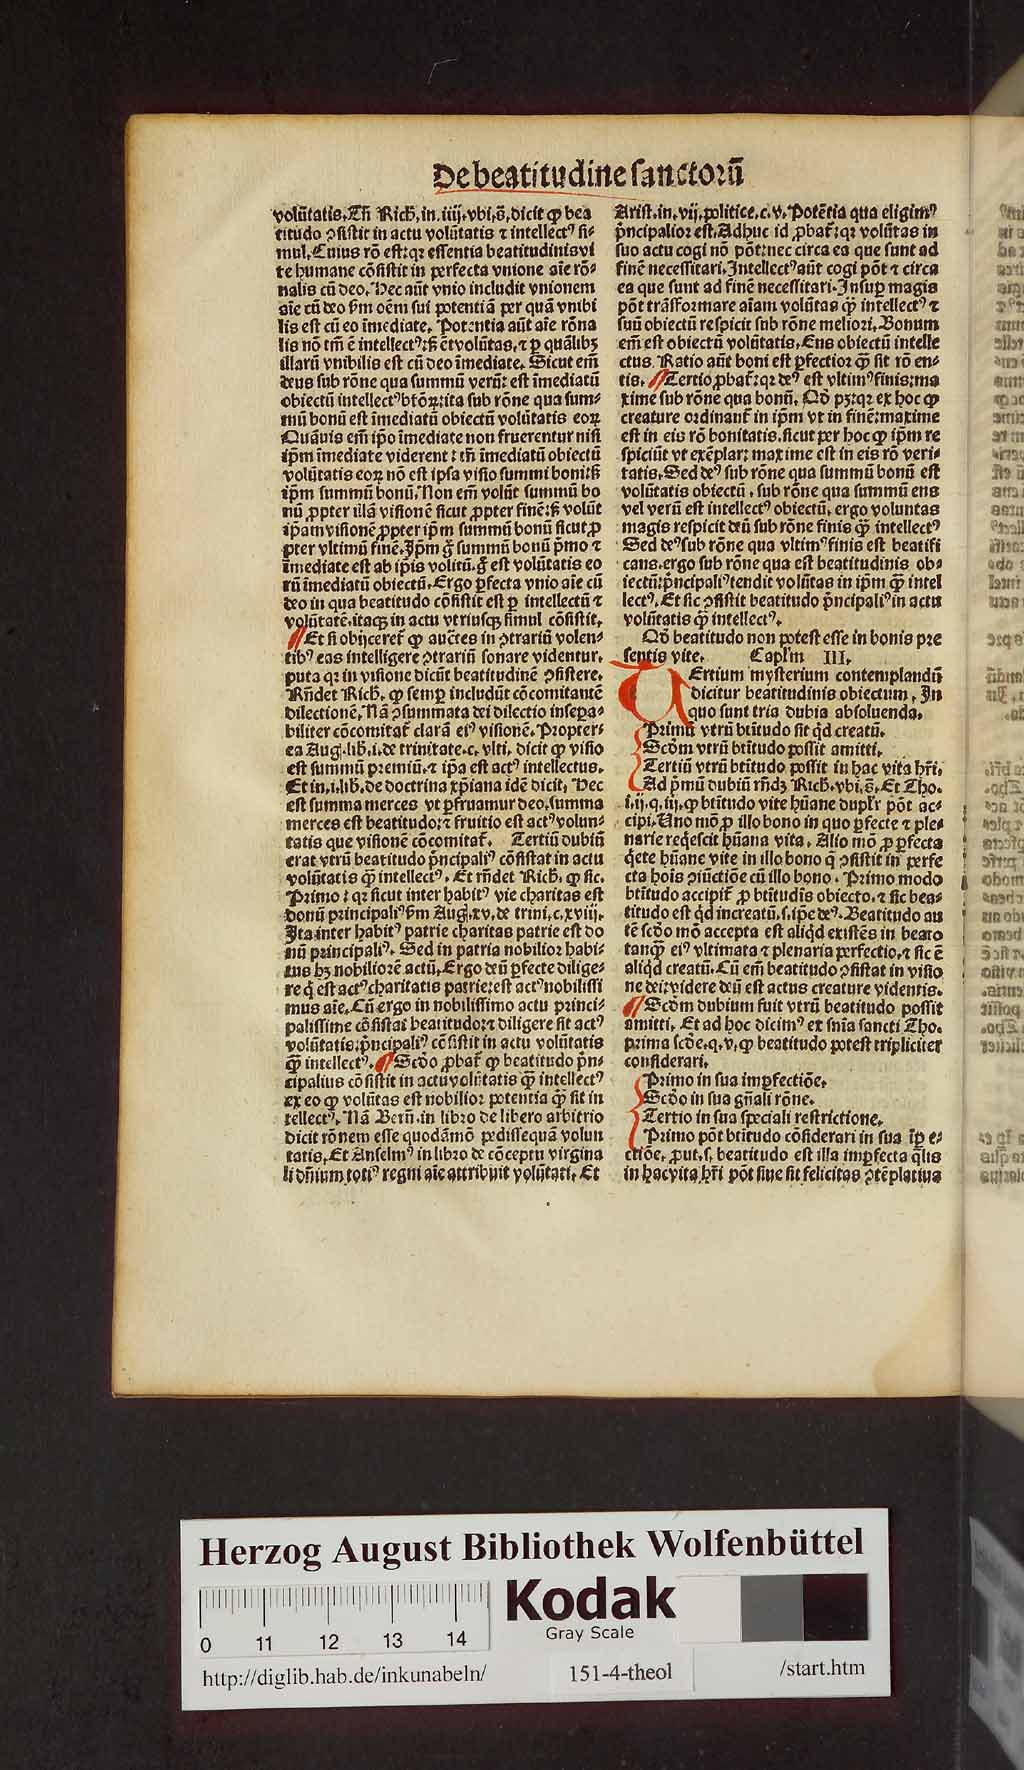 De beatitudine sanctorū
volūtatis. Th̄ Rich̄. in. iiij. vbi. s̄. dicit ꝙ bea
titudo ꝯsistit in actu volūtatis ⁊ intellectꝰ si-
mul. Cuius rō est: qꝛ essentia beatitudinis vi
te humane cōsistit in perfecta vnione aīe rō-
nalis cū deo. Hec aūt vnio includit vnionem
aīe cū deo ẜm oēm sui potentiā per quā vnibi
lis est cū eo īmediate. Potentia aūt aīe rōna
lis nō tm̄ ē intellectꝰ: sꝫ ēt volūtas. ⁊ ꝑ quālibꝫ
illarū vnibilis est cū deo īmediate. Sicut em̄
deus sub rōne qua summū verū: est īmediatū
obiectū intellectꝰ btōꝝ: ita sub rōne qua sum-
mū bonū est īmediatū obiectū volūtatis eoꝝ
Quāuis em̄ ip̄o īmediate non fruerentur nisi
ip̄m īmediate viderent: tn̄ īmediatū obiectū
volūtatis eoꝝ nō est ipsa visio summi boni: sꝫ
ip̄m summū bonū. Non em̄ volūt summū bo
nū ꝓpter illā visionē sicut ꝓpter finē: sꝫ volūt
ip̄am visionē ꝓpter ip̄m summū bonū sicut ꝓ
pter vltimū finē. Ip̄m g̊ summū bonū p̄mo ⁊
īmediate est ab ip̄is volitū. g̊ est volūtatis eo
rū īmediatū obiectū. Ergo ꝑfecta vnio aīe cū
deo in qua beatitudo cōsistit est ꝑ intellectū ⁊
volūtatē. itaqꝫ in actu vtriusqꝫ simul cōsistit.
¶ Et si obijceret̄ ꝙ auc̄tes in ꝯtrariū volen-
tibꝰ eas intelligere ꝯtrariū sonare videntur.
puta qꝛ in visione dicūt beatitudinē ꝯsistere.
Rn̄det Rich̄. ꝙ semꝑ includūt cōcomitantē
dilectionē. Nā ꝯsummata dei dilectio insepa-
biliter cōcomitat̄ clarā eiꝰ visionē. Propter-
ea Aug. lib̄. i. de trinitate. c. vlti. dicit ꝙ visio
est summū premiū. ⁊ ip̄a est actꝰ intellectus.
Et in. i. lib̄. de doctrina xp̄iana idē dicit. Hec
est summa merces vt ꝑfruamur deo. summa
merces est beatitudo: ⁊ fruitio est actꝰ volun-
tatis que visionē cōcomitat̄. Tertiū dubiū
erat vtrū beatitudo p̄ncipaliꝰ cōsistat in actu
volūtatis qꝫ̄ intellectꝰ. Et rn̄det Rich̄. ꝙ sic.
Primo: qꝛ sicut inter habitꝰ vie charitas est
donū principaliꝰ ẜm Aug. xv. de trini. c. xviij.
Ita inter habitꝰ patrie charitas patrie est do
nū principaliꝰ. Sed in patria nobilior habi-
tus hꝫ nobiliorē actū. Ergo deū ꝑfecte dilige-
re q̄ est actꝰ charitatis patrie: est actꝰ nobilissi
mus aīe. Cū ergo in nobilissimo actu princi-
palissime cōsistat beatitudo: ⁊ diligere sit actꝰ
volūtatis: p̄ncipaliꝰ cōsistit in actu volūtatis
qꝫ̄ intellectꝰ. ¶ Scd̄o ꝓbat̄ ꝙ beatitudo p̄n-
cipalius cōsistit in actu volūtatis qꝫ̄ intellectꝰ
ex eo ꝙ volūtas est nobilior potentia qꝫ̄ sit in
tellectꝰ. Nā Bern̄. in libro de libero arbitrio
dicit rōnem esse quodāmō pedissequā volun
tatis. Et Anselmꝰ in libro de cōceptu virgina
li dn̄ium totiꝰ regni aīe attribuit volūtati. Et
Arist. in. vij. politice. c. v. Potētia qua eligimꝰ
p̄ncipalior est. Adhuc id ꝓbat̄: qꝛ volūtas in
suo actu cogi nō pōt: nec circa ea que sunt ad
finē necessitari. Intellectꝰ aūt cogi pōt ⁊ circa
ea que sunt ad finē necessitari. Insuꝑ magis
pōt trāsformare aīam volūtas qꝫ̄ intellectꝰ ⁊
suū obiectū respicit sub rōne meliori. Bonum
em̄ est obiectū volūtatis. Ens obiectū intelle
ctus. Ratio aūt boni est ꝑfectior qꝫ̄ sit rō en-
tis. ¶ Tertio ꝓbat̄: qꝛ deꝰ est vltimꝰ finis: ma
xime sub rōne qua bonū. Qd̄ pꝫ: qꝛ ex hoc ꝙ
creature ordinant̄ in ip̄m vt in finē: maxime
est in eis rō bonitatis. sicut per hoc ꝙ ip̄m re
spiciūt vt exēplar: maxime est in eis rō veri-
tatis. Sed deꝰ sub rōne qua summū bonū est
volūtatis obiectū. sub rōne qua summū ens
vel verū est intellectꝰ obiectū. ergo voluntas
magis respicit deū sub rōne finis qꝫ̄ intellectꝰ
Sed deꝰ sub rōne qua vltimꝰ finis est beatifi
cans. ergo sub rōne qua est beatitudinis ob-
iectū: p̄ncipaliꝰ tendit volūtas in ip̄m qꝫ̄ intel
lectꝰ. Et sic ꝯsistit beatitudo p̄ncipaliꝰ in actu
volūtatis qꝫ̄ intellectꝰ.
Qd̄ beatitudo non potest esse in bonis pre
sentis vite. Capl̄m III.
TErtium mysterium contemplandū
dicitur beatitudinis obiectum. In
quo sunt tria dubia absoluenda.
Primū vtrū btītudo sit qd̄ creatū.
Scd̄m vtrū btītudo possit amitti.
Tertiū vtrū btītudo possit in hac vita hr̄i.
Ad p̄mū dubiū rn̄dꝫ Rich̄. vbi. s̄. Et Tho.
i. ij. q. iij. ꝙ btītudo vite hūane dupl̄r pōt ac-
cipi. Uno mō ꝓ illo bono in quo ꝑfecte ⁊ ple-
narie req̄escit hūana vita. Alio mō ꝓ ꝑfecta
q̄ete hūane vite in illo bono q̄ ꝯsistit in perfe
cta hoīs ꝯiūctiōe cū illo bono. Primo modo
btītudo accipit̄ ꝓ btītudīs obiecto. ⁊ sic bea-
titudo est qd̄ increatū. s. ip̄e deꝰ. Beatitudo au
tē scd̄o mō accepta est aliqd̄ existēs in beato
tanqꝫ̄ eiꝰ vltimata ⁊ plenaria perfectio. ⁊ sic ē
aliqd̄ creatū. Cū em̄ beatitudo ꝯsistat in visio
ne dei: videre deū est actus creature videntis.
¶ Scd̄m dubium fuit vtrū beatitudo possit
amitti. Et ad hoc dicimꝰ ex sn̄ia sancti Tho.
prima scd̄e. q. v. ꝙ beatitudo potest tripliciter
considerari.
Primo in sua imꝑfectiōe.
Scd̄o in sua gn̄ali rōne.
Tertio in sua speciali restrictione.
Primo pōt btītudo cōsiderari in sua īꝑfe-
ctiōe. ꝓut. s. beatitudo est illa imꝑfecta q̄lis
in hac vita hr̄i pōt siue sit felicitas ꝯtēplatiua
Herzog August Bibliothek Wolfenbüttel
Kodak
Gray Scale
0 11 12 13 14
http://diglib.hab.de/inkunabeln/ 151-4-theol /start.htm